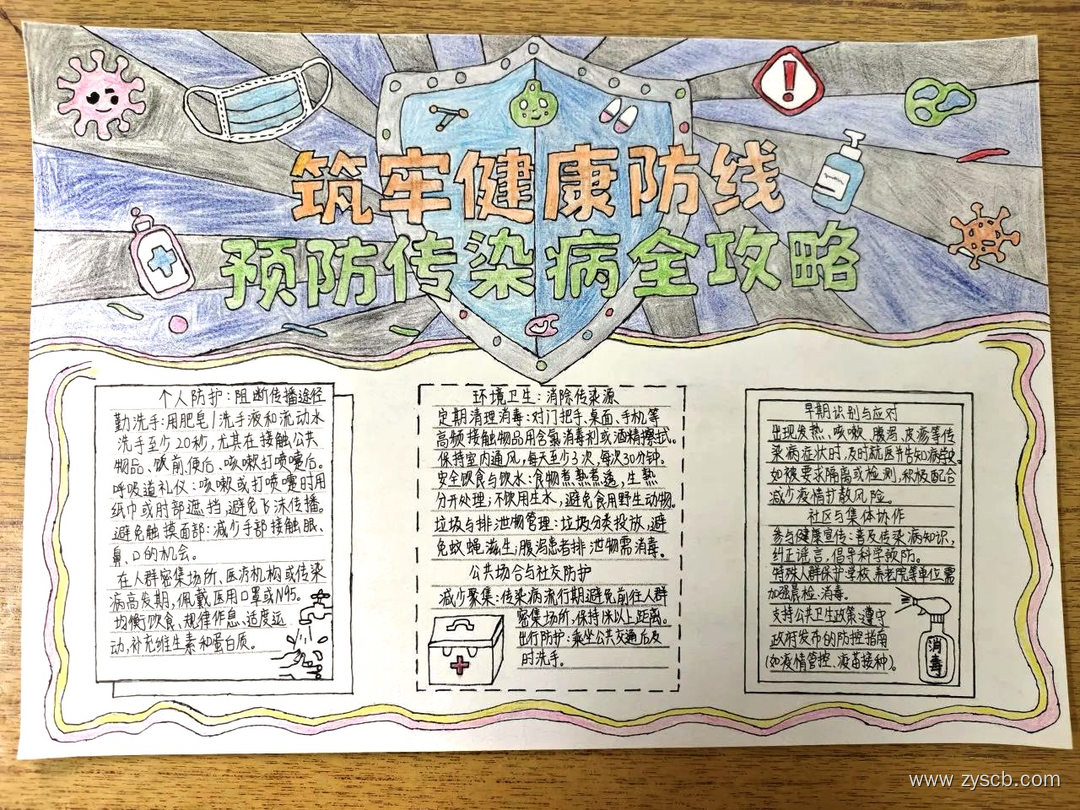 筑牢健康防线
预防传染病全攻略
个人防护:阻断传播途径
勤洗手:用肥皂/洗手液和流动水
洗手至少20秒,尤其在接触公共
物品、饭前、便后、咳嗽打喷嚏后。
呼吸道礼仪:咳嗽或打喷嚏时用
纸巾或肘部遮挡,避免飞沫传播。
避免触摸面部:减少手部接触眼、
鼻、口的机会。
在人群密集场所、医疗机构或传染
病高发期,佩戴医用口罩或N95。
均衡饮食、规律作息、适度运
动,补充维生素和蛋白质。
环境卫生:消除传染源
定期清理消毒:对门把手、桌面、手机等
高频接触物品用含氯消毒剂或酒精擦拭。
保持室内通风,每天至少3次,每次30分钟。
安全饮食与饮水:食物煮熟煮透,生熟
分开处理,不饮用生水,避免食用野生动物。
垃圾与排泄物管理:垃圾分类投放,避
免蚊蝇滋生;腹泻患者排泄物需消毒。
公共场合与社交防护
减少聚集:传染病流行期避免前往人群
密集场所,保持1米以上距离。
出行防护:乘坐公共交通后及
时洗手。
早期识别与应对
出现发热、咳嗽、腹泻、皮疹等传
染病症状时,及时就医并告知病史。
如被要求隔离或检测,积极配合
减少疫情扩散风险。
社区与集体协作
参与健康宣传:普及传染病知识,
纠正谣言,倡导科学预防。
特殊人群保护学校、养老院等单位需
加强晨检、消毒。
支持公共卫生政策:遵守
政府发布的防控指南
(如疫情管控、疫苗接种)。
消毒
www.zyscb.com